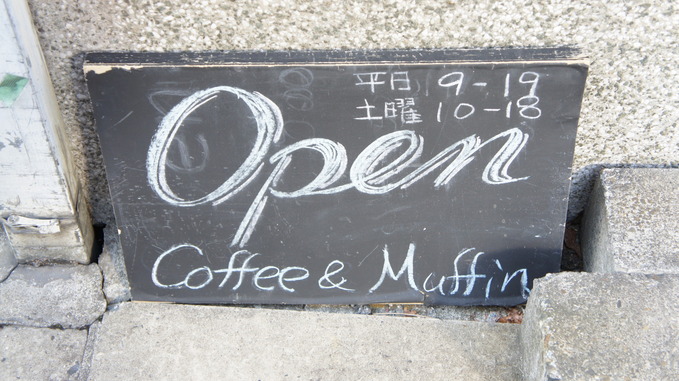 平日 9-19
土曜 10-18
Open
Coffee & Muffin